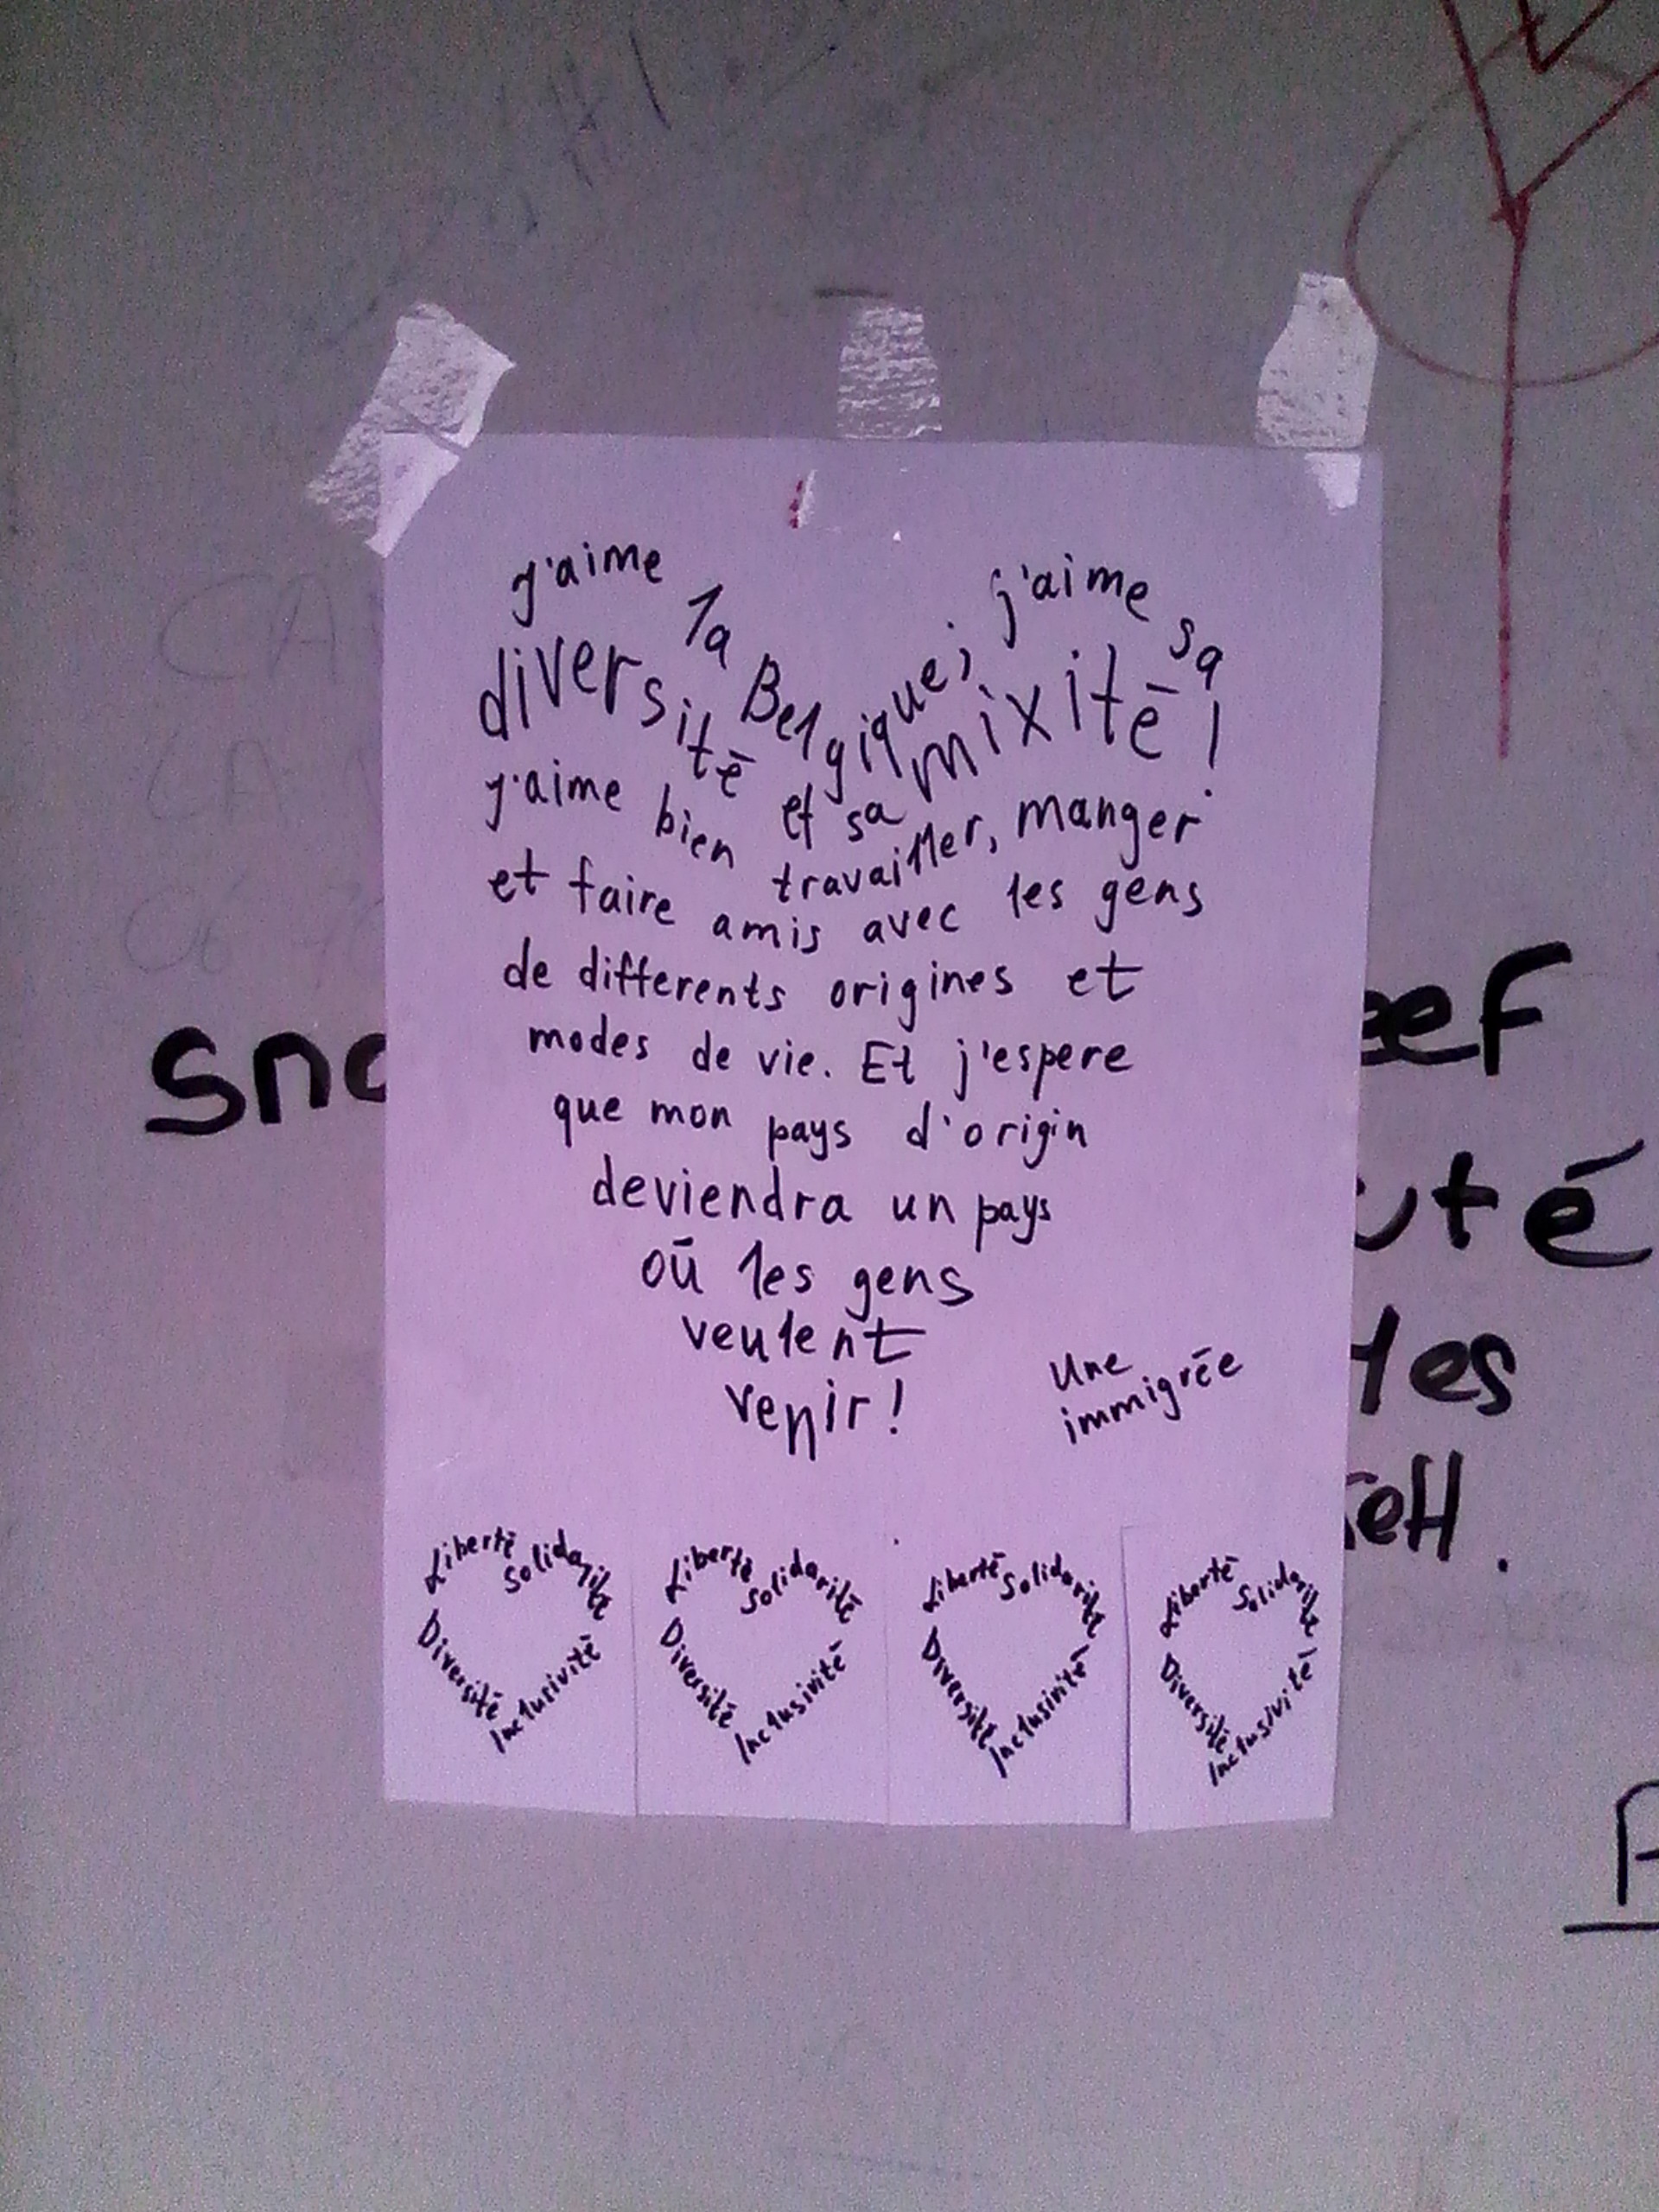 j'aime la Belgique, j'aime sa
diversité et sa mixité !
j'aime bien travailler, manger
et faire amis avec les gens
de differents origines et
modes de vie. Et j'espere
que mon pays d'origin
deviendra un pays
où les gens
veulent
venir !
Une
immigrée
Liberté Solidarité
Diversité Inclusivité
Liberté Solidarité
Diversité Inclusivité
Liberté Solidarité
Diversité Inclusivité
Liberté Solidarité
Diversité Inclusivité